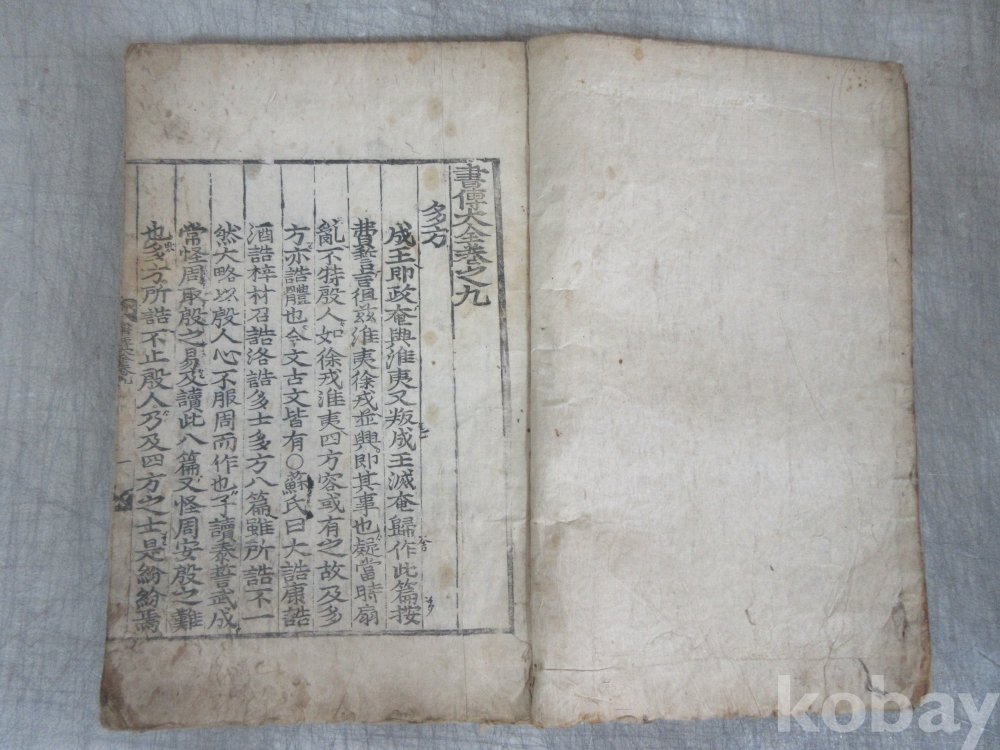 書傳大全卷之九
多方
成王即政奄與淮夷又叛成王滅奄歸作此篇按
費誓言徂玆淮夷徐戎並興即其事也疑當時扇
亂不特殷人如徐戎淮夷四方容或有之故及多
方亦誥體也今文古文皆有○蘇氏曰大誥康誥
酒誥梓材召誥洛誥多士多方八篇雖所誥不一
然大略以殷人心不服周而作也予讀泰誓武成
常怪周取殷之易及讀此八篇又怪周安殷之難
也多方所誥不止殷人乃及四方之士是紛紛焉
kobay